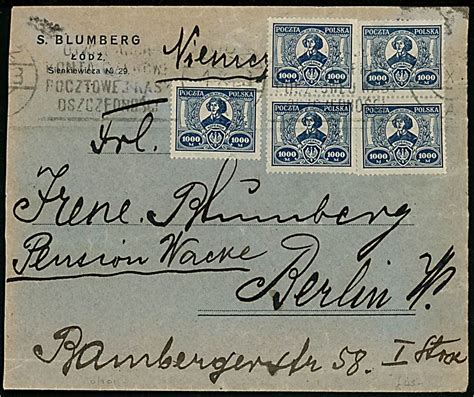 S. BLUMBERG
ŁÓDŹ,
Sienkiewicza № 29.
Niemcy
POCZTOWEJ KASY
OSZCZĘDNOŚCI
POCZTA POLSKA
1000 M 1000
POCZTA POLSKA
1000 M 1000
POCZTA POLSKA
1000 M 1000
POCZTA POLSKA
1000 M 1000
POCZTA POLSKA
1000 M 1000
Frl.
Irene Blumberg
Pension Wacke
Berlin W.
Bambergerstr 58. I Stock